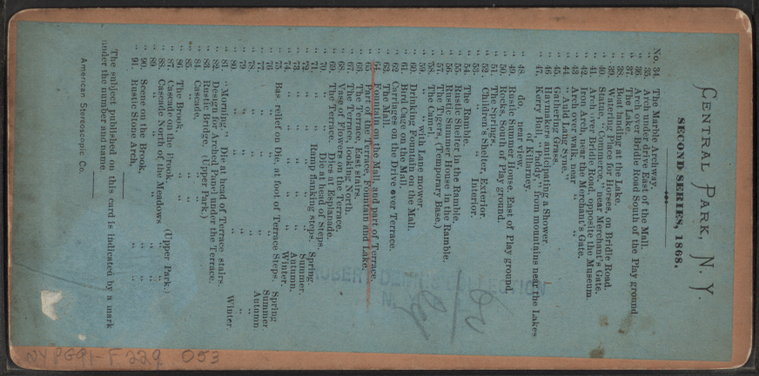 CENTRAL PARK, N. Y.
SECOND SERIES, 1868.
No. 34. The Marble Archway.
35. Arch under drive East of the Mall.
36. Arch over Bridle Road South of the Play ground
37. The Lake.
38. Boat landing at the Lake.
39. Watering Place for Horses, on Bridle Road.
40. Statue, "Commerce," near Merchant's Gate.
41. Arch over Bridle Road, opposite the Museum.
42. Iron Arch, near the Merchant's Gate.
43. Arbor over walk, near " "
44. "Auld Lang Syne."
45. Gathering Grass.
46. Haymakers anticipating a Shower.
47. Kerry Bull, "Paddy" from mountains near the Lakes
of Killarney.
48. do. near view.
49. Rustic Summer House, East of Play ground.
50. Rocks, South of Play ground.
51. The Springs.
52. Children's Shelter, Exterior.
53. " " Interior.
54. The Ramble.
55. Rustic Shelter in the Ramble.
56. Rustic Summer House in the Ramble.
57. The Tigers, (Temporary Base.)
58. The Camel.
59. " with Lawn mower.
60. Drinking Fountain on the Mall.
61. Bird Cage on the Mall.
62. Carriages on the Drive over Terrace.
63. The Mall.
64. Fountain on the Mall, and part of Terrace.
65. Part of the Terrace, Fountain and Lake.
66. The Terrace, East stairs.
67. The Terrace, looking North.
68. Vase of Flowers on the Terrace.
69. The Terrace. Dies at Esplanade.
70. " Die at head of Steps.
71. " Ramp flanking steps. Spring
72. " " " Summer.
73. " " " Autumn.
74. " " " Winter.
75. Bas relief on Die, at foot of Terrace Steps. Spring
76. " " " Summer
77. " " " Autumn
80. " " " Winter.
81. "Morning." Die at head of Terrace stairs.
82. Design for Arched Panel under the Terrace.
83. Rustic Bridge. (Upper Park.)
84. Cascade, "
85. " "
86. The Brook, "
87. Cascade on the Brook, (Upper Park.)
88. Cascade North of the Meadows. "
89. " " "
90. Scene on the Brook, "
91. Rustic Stone Arch, "
The subject published on this card is indicated by a mark
under the number and name.
American Stereoscopic Co.
ROBERT DENNIS COLLECTION
NYPG91-F 339 053